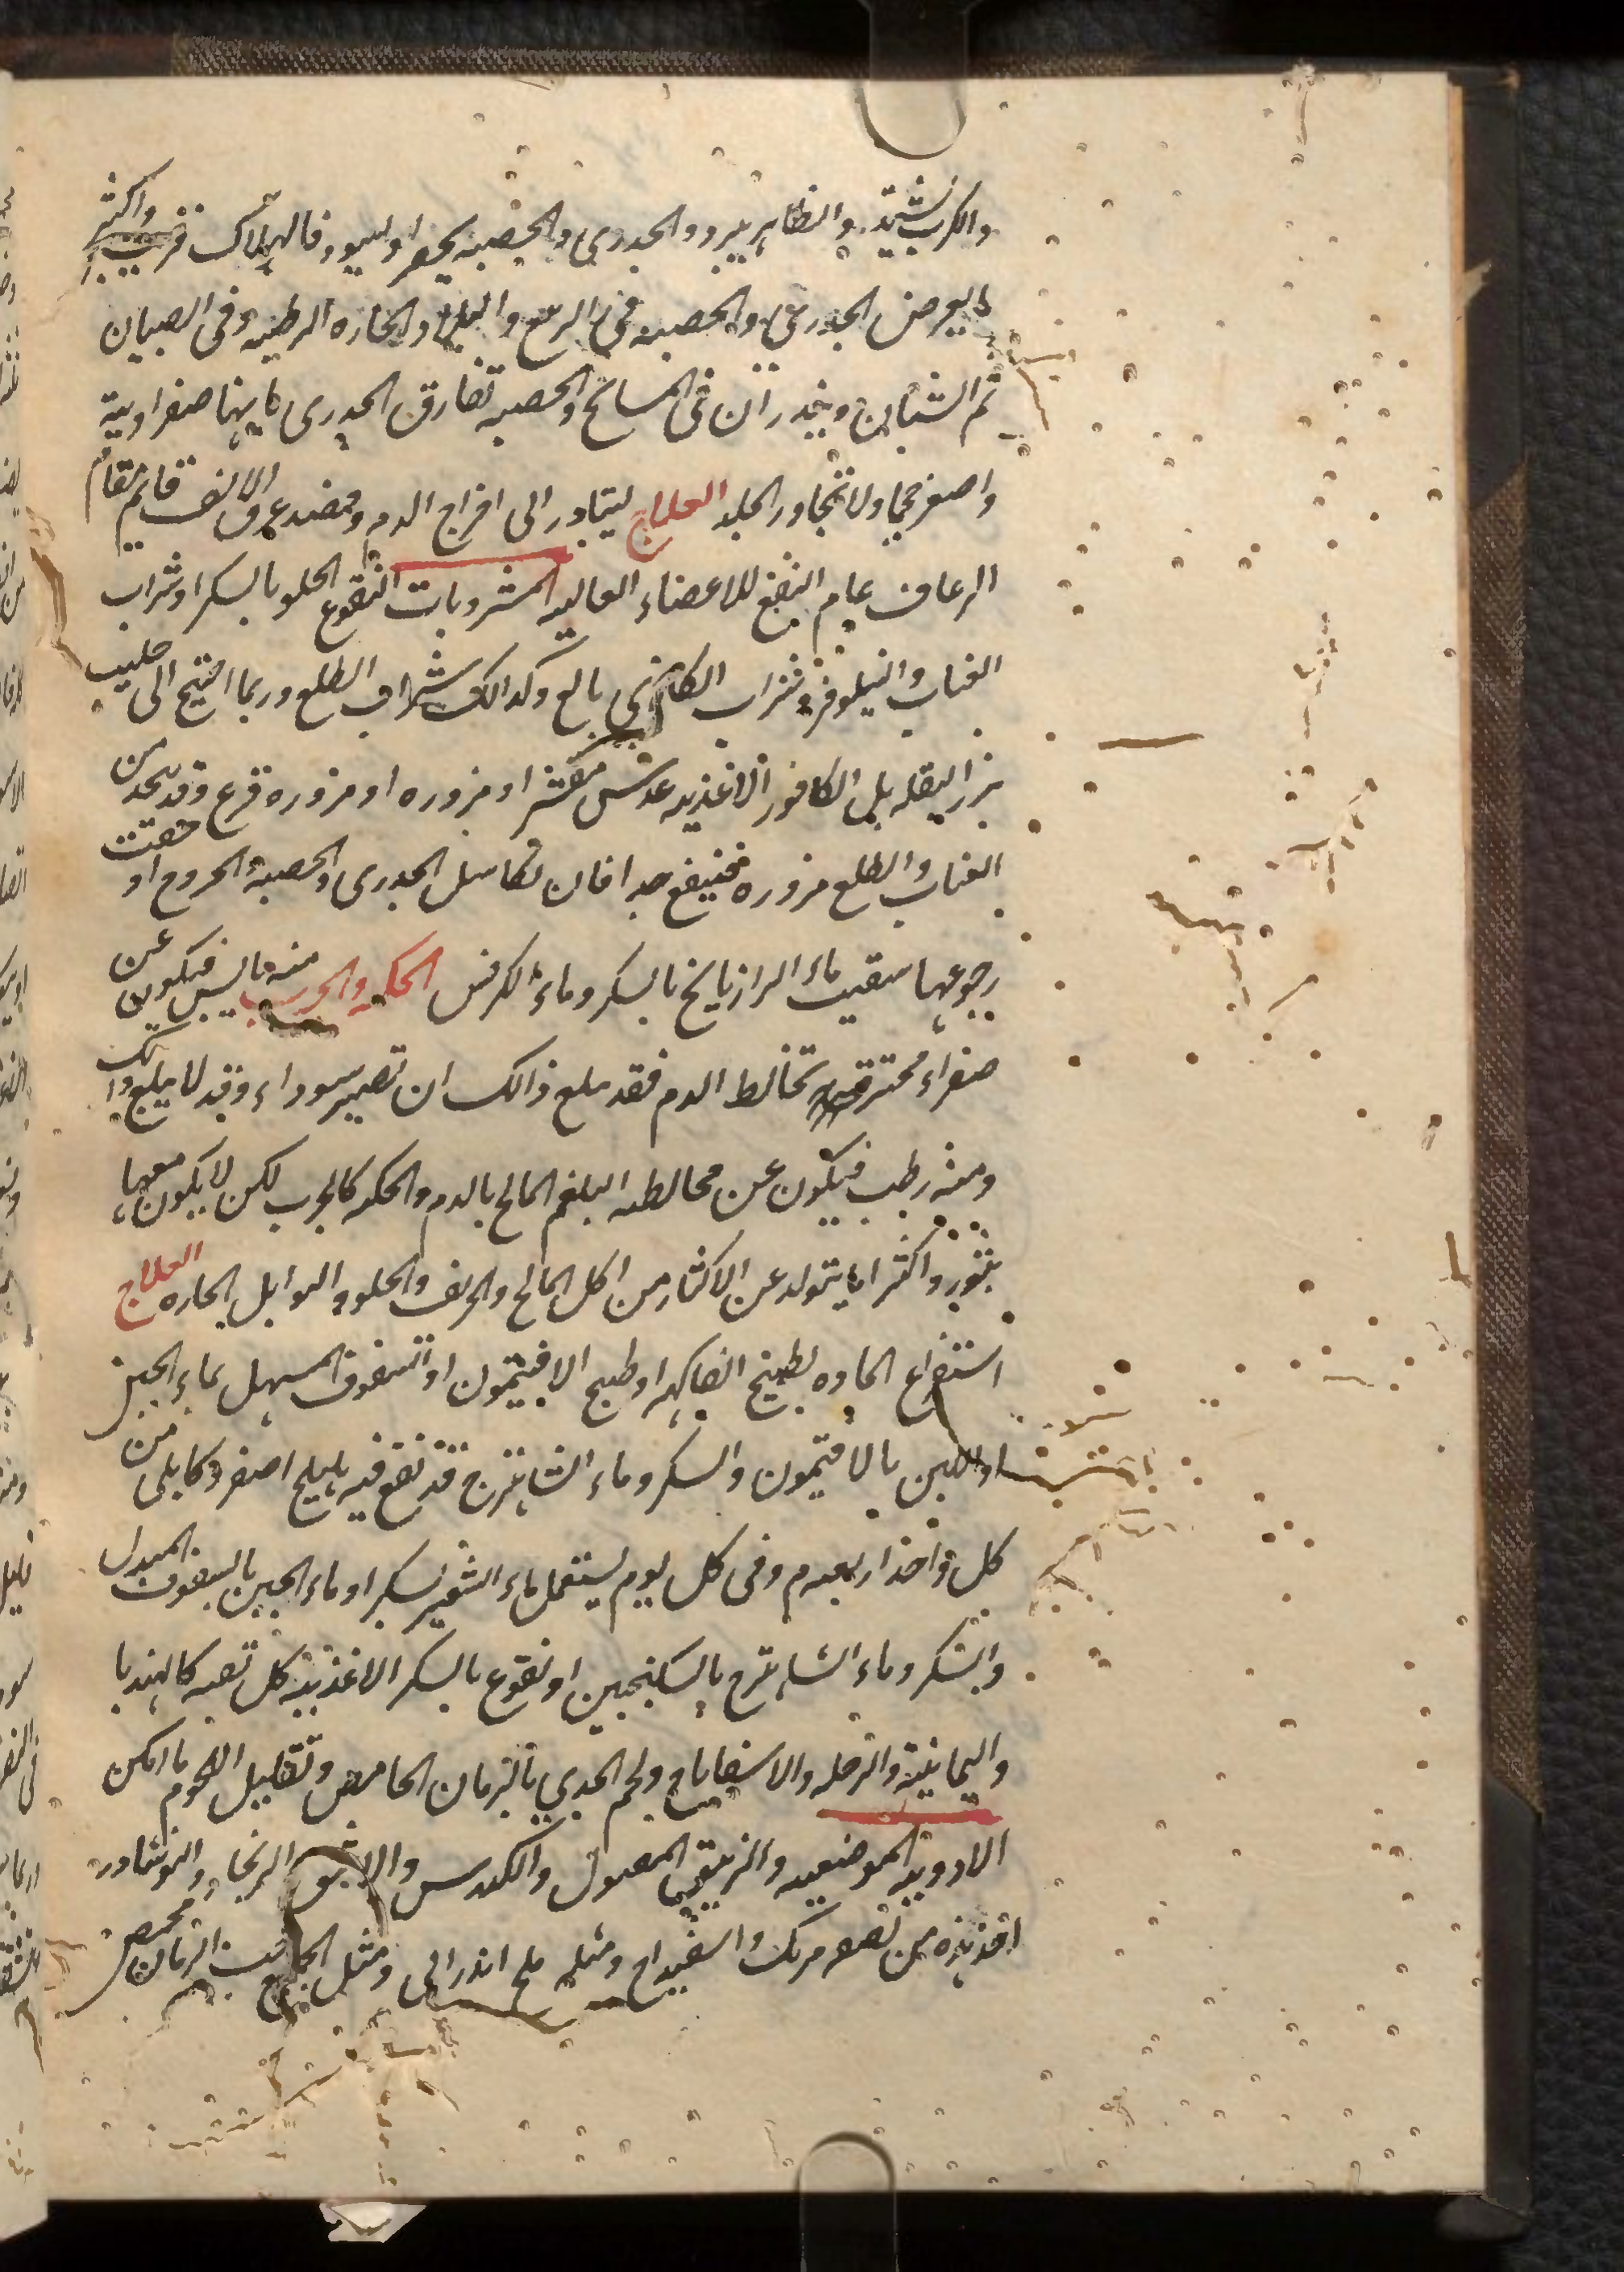 والكرب يشتد والظاهر يبرد والجدري والحصبه يخضر او يسود فالهلاك قريب واكثر
ما يعرض الجدري والحصبه في الربيع والبلاد الحاره الرطبه وفي الصبيان
ثم الشبان ويندر ان في المسائخ والحصبه تفارق الجدري بانها صفراوية
واصغر حجما ولا تتجاوز الجلد العلاج ليتبادر الى اخراج الدم وفصد عرق الانف قائم مقام
الرعاف عام النفع للاعضاء العاليه المشروبات النقوع الحلو بالسكر او شراب
العناب والنيلوفر وشراب الكادي بالغ وكذالك شراب الطلع وربما احتيج الى حليب
بزر البقله بل الكافور الاغذيه عدس مقشر او مزوره او مزوره قرع وقد يتخذ من
العناب والطلع مزوره فينفع جدا فان تكاسل الجدري والحصبة الخروج او خفت
رجوعها سقيت ماء الرازيانج بالسكر وماء الكرفس الحكه والجرب منه يابس فيكون عن
صفراء محترقة تخالط الدم فقد يبلغ ذالك ان تصير سوداء وقد لا يبلغ ذالك
ومنه رطب فيكون عن مخالطه البلغم المالح بالدم والحكه كالجرب لكن لا يكون معها
بثور واكثر ما يتولد عن الاكثار من اكل المالح والحريف والحلو والتوابل الحاره العلاج
استفراغ الماده بطبيخ الفاكهه او طبيخ الافيثمون او السفوف المسهل بماء الجبن
او اللبن بالافتيمون والسكر وماء الشاهترج قد نقع فيه هليلج اصفر وكابلى من
كل واحد اربعه م وفي كل يوم يستعمل ماء الشعير بسكر او ماء الجبن بالسفوف المبدل
والسكر وماء الشاهترج بالسكنجبين او نقوع بالسكر الاغذية كل تفه كالهندبا
واليمانية والرجله والاسفاناخ ولحم الجدي بالرمان الحامض وتقليل اللحوم ما امكن
الادوية الموضعيه والزيبق المقتول والكندس والزنجار والنوشادر
اخذ من مرتك واسفيداج ومثله ملح اندراني ومثل الجميع حب الرمان محمص